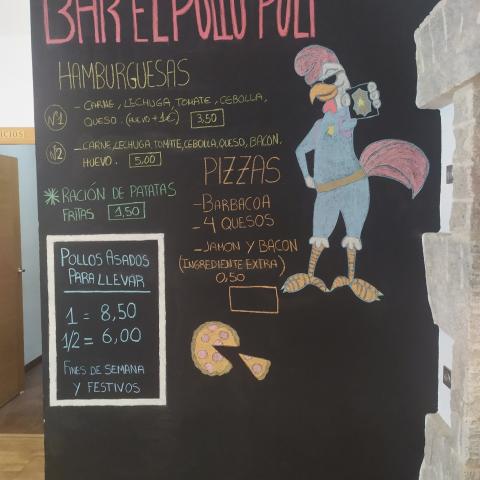 BAR EL POLLO POLI
HAMBURGUESAS
Nº1 - CARNE, LECHUGA, TOMATE, CEBOLLA,
QUESO. (HUEVO +1€) 3,50
Nº2 - CARNE, LECHUGA, TOMATE, CEBOLLA, QUESO, BACON,
HUEVO. 5,00
RACIÓN DE PATATAS
FRITAS 1,50
PIZZAS
- BARBACOA
- 4 QUESOS
- JAMON Y BACON
(INGREDIENTE EXTRA)
0,50
POLLOS ASADOS
PARA LLEVAR
1 = 8,50
1/2 = 6,00
FINES DE SEMANA
Y FESTIVOS